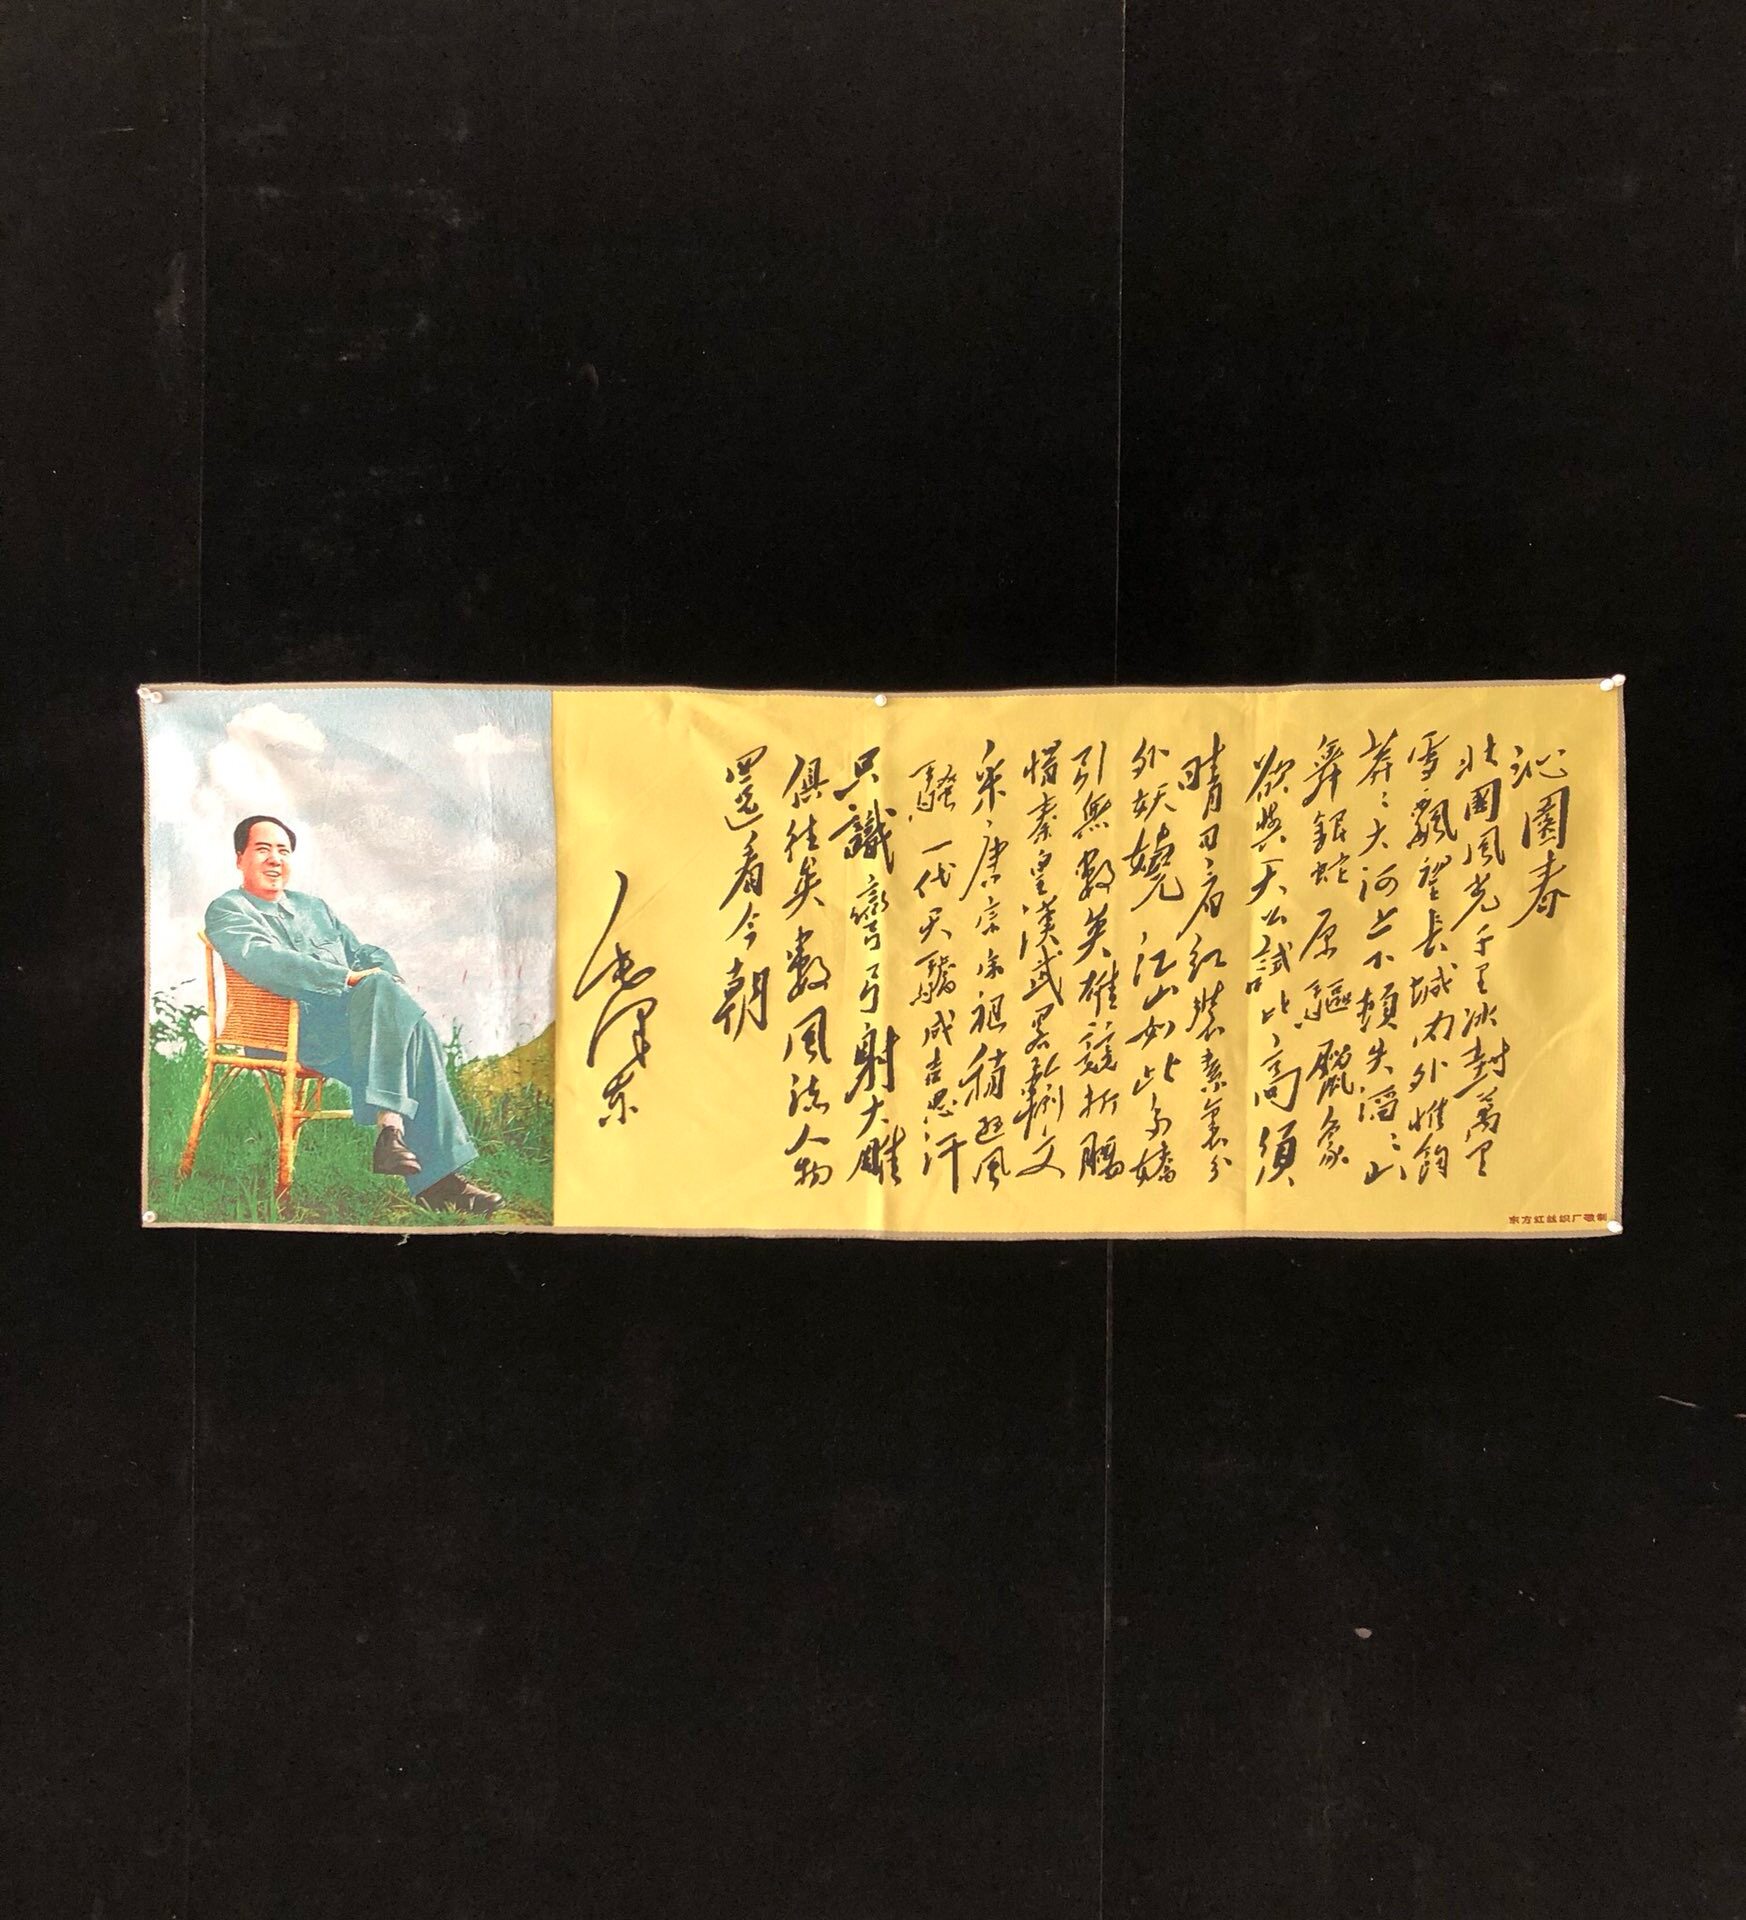 沁園春
北國風光千里冰封萬里
雪飄望長城内外惟餘
莽〻大河上下頓失滔〻山
舞銀蛇原驅臘象
欲與天公試比高須
晴日看紅裝素裹分
外妖嬈江山如此多嬌
引無數英雄競折腰
惜秦皇漢武略輸文
采唐宗宋祖稍遜風
騷一代天驕成吉思汗
只識彎弓射大雕
俱往矣數風流人物
還看今朝
毛澤东
东方红丝织厂敬制